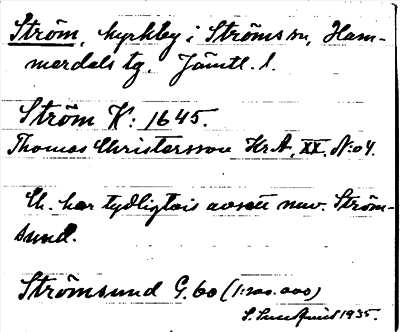 Ström, kyrkby i Ströms sn, Ham-
merdals tg. Jämtl. l.
Ström K: 1645.
Thomas Christersson KrA, XX. N:o 4.
Ch. har tydligtvis avsett nuv. Ström-
sund.
Strömsund G. 60 (1:200.000)
1935.